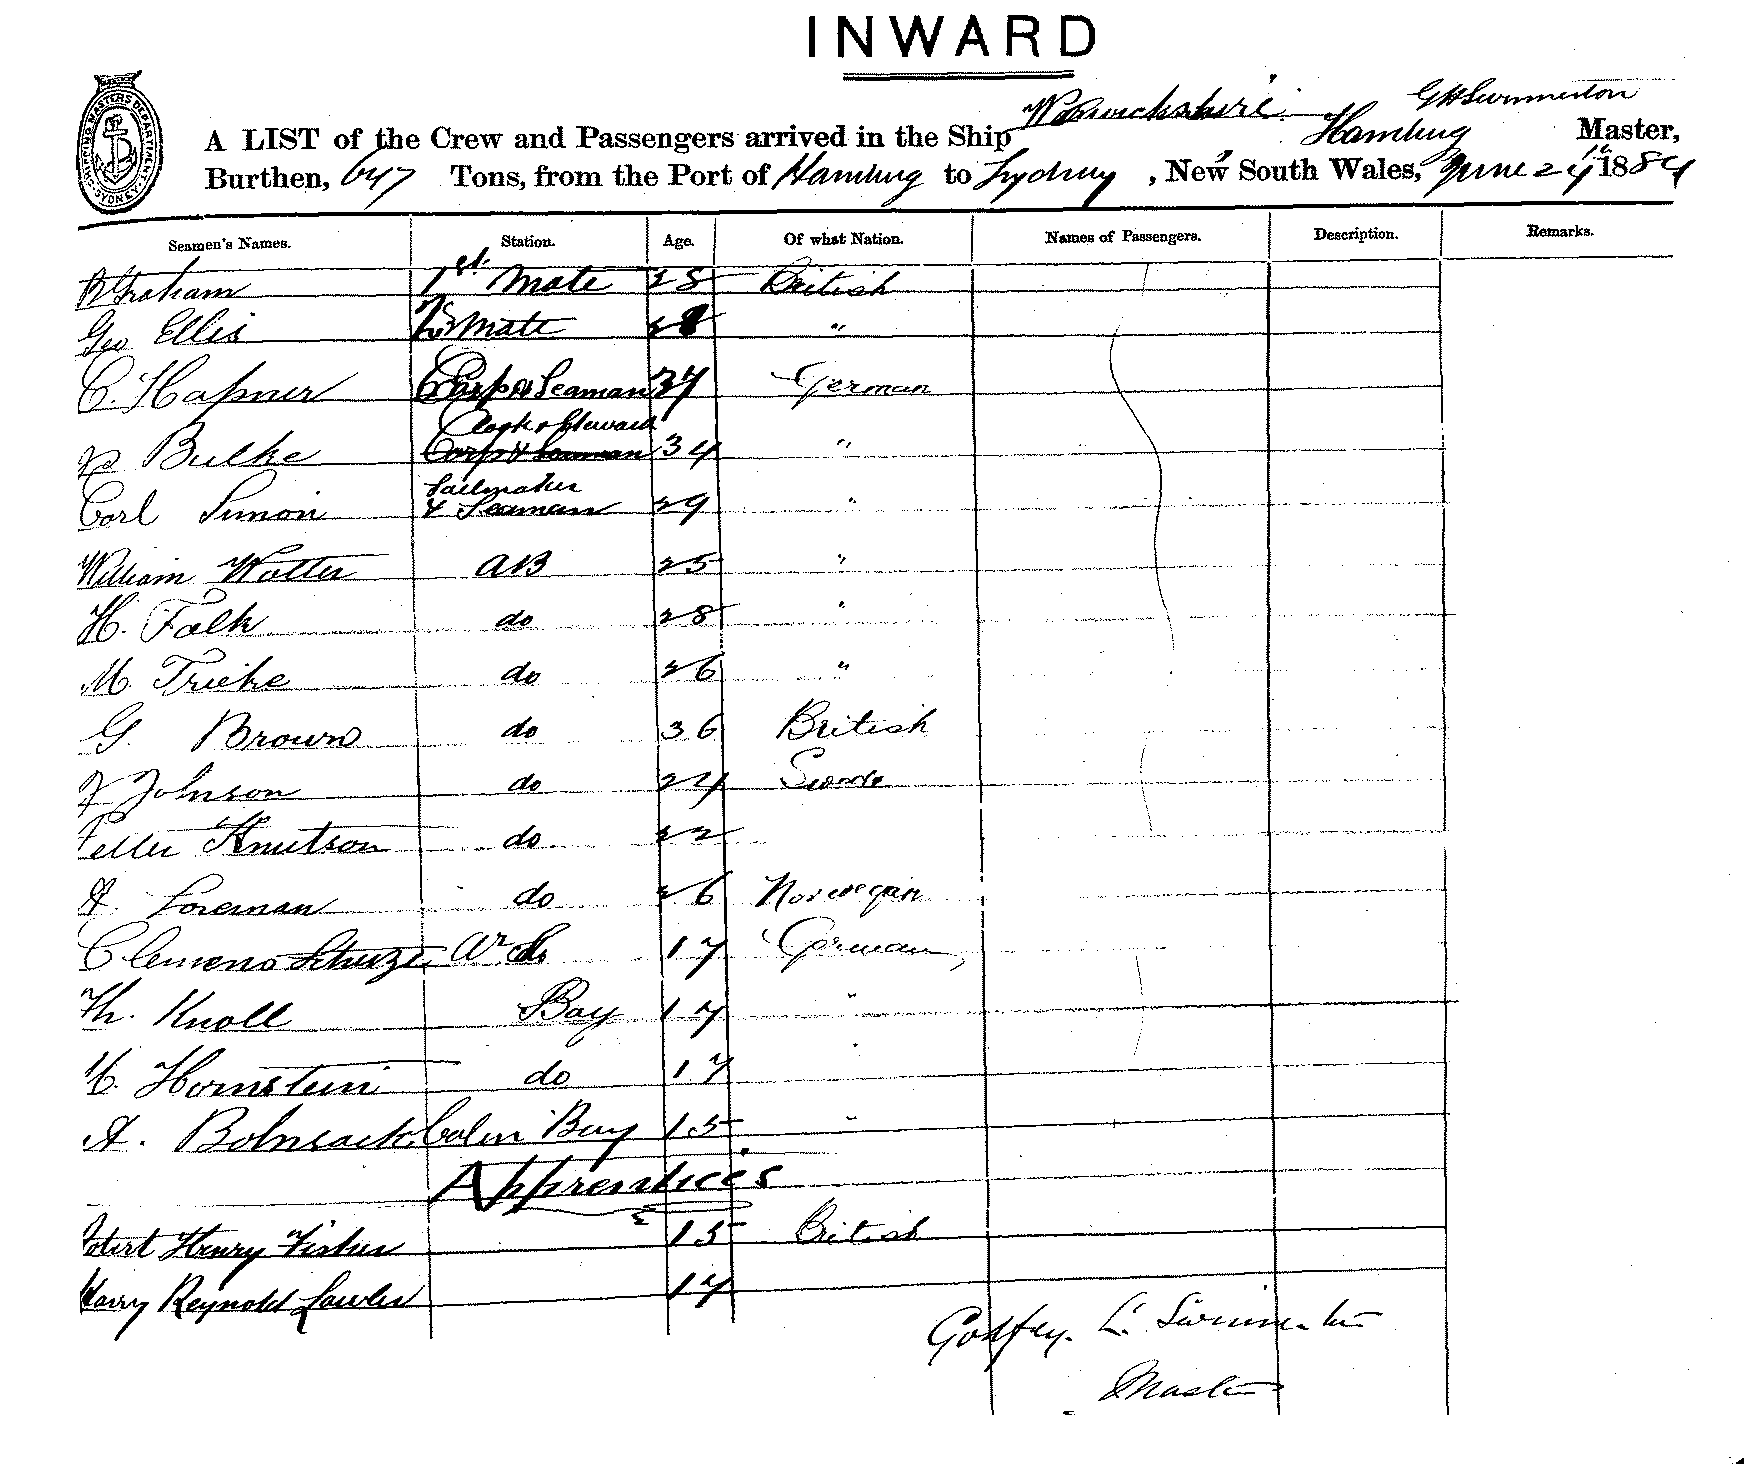 INWARD
Warwickshire. G H Swinnerton
A LIST of the Crew and Passengers arrived in the Ship Hamburg Master,
Burthen, 647 Tons, from the Port of Hamburg to Sydney, New South Wales, June 24th 1884
Seamen's Names. Station. Age. Of what Nation. Names of Passengers. Description. Remarks.
R Graham 1st Mate 28 British
Geo Ellis 2nd Mate 28 "
C. Hafsner Carp & Seaman 37 German
Cook & Steward
Bulke Carp & Seaman 34 "
Sailmaker
Carl Simon & Seaman 29 "
William Walter AB 25 "
H. Falk do 28 "
M. Trieke do 26 "
G. Brown do 36 British
J Johnson do 24 Swede
Petter Knutson do 22
A. Foreman do 26 Norwegian
Clemens Schurze 17 German
Th. Knoll Boy 17 "
H. Hornstein do 17 "
A. Bohnsack Cabin Boy 15 "
Apprentices
Robert Henry Fisher 15 British
Harry Reynold Lawler 17
Godfrey. Swinnerton
Master